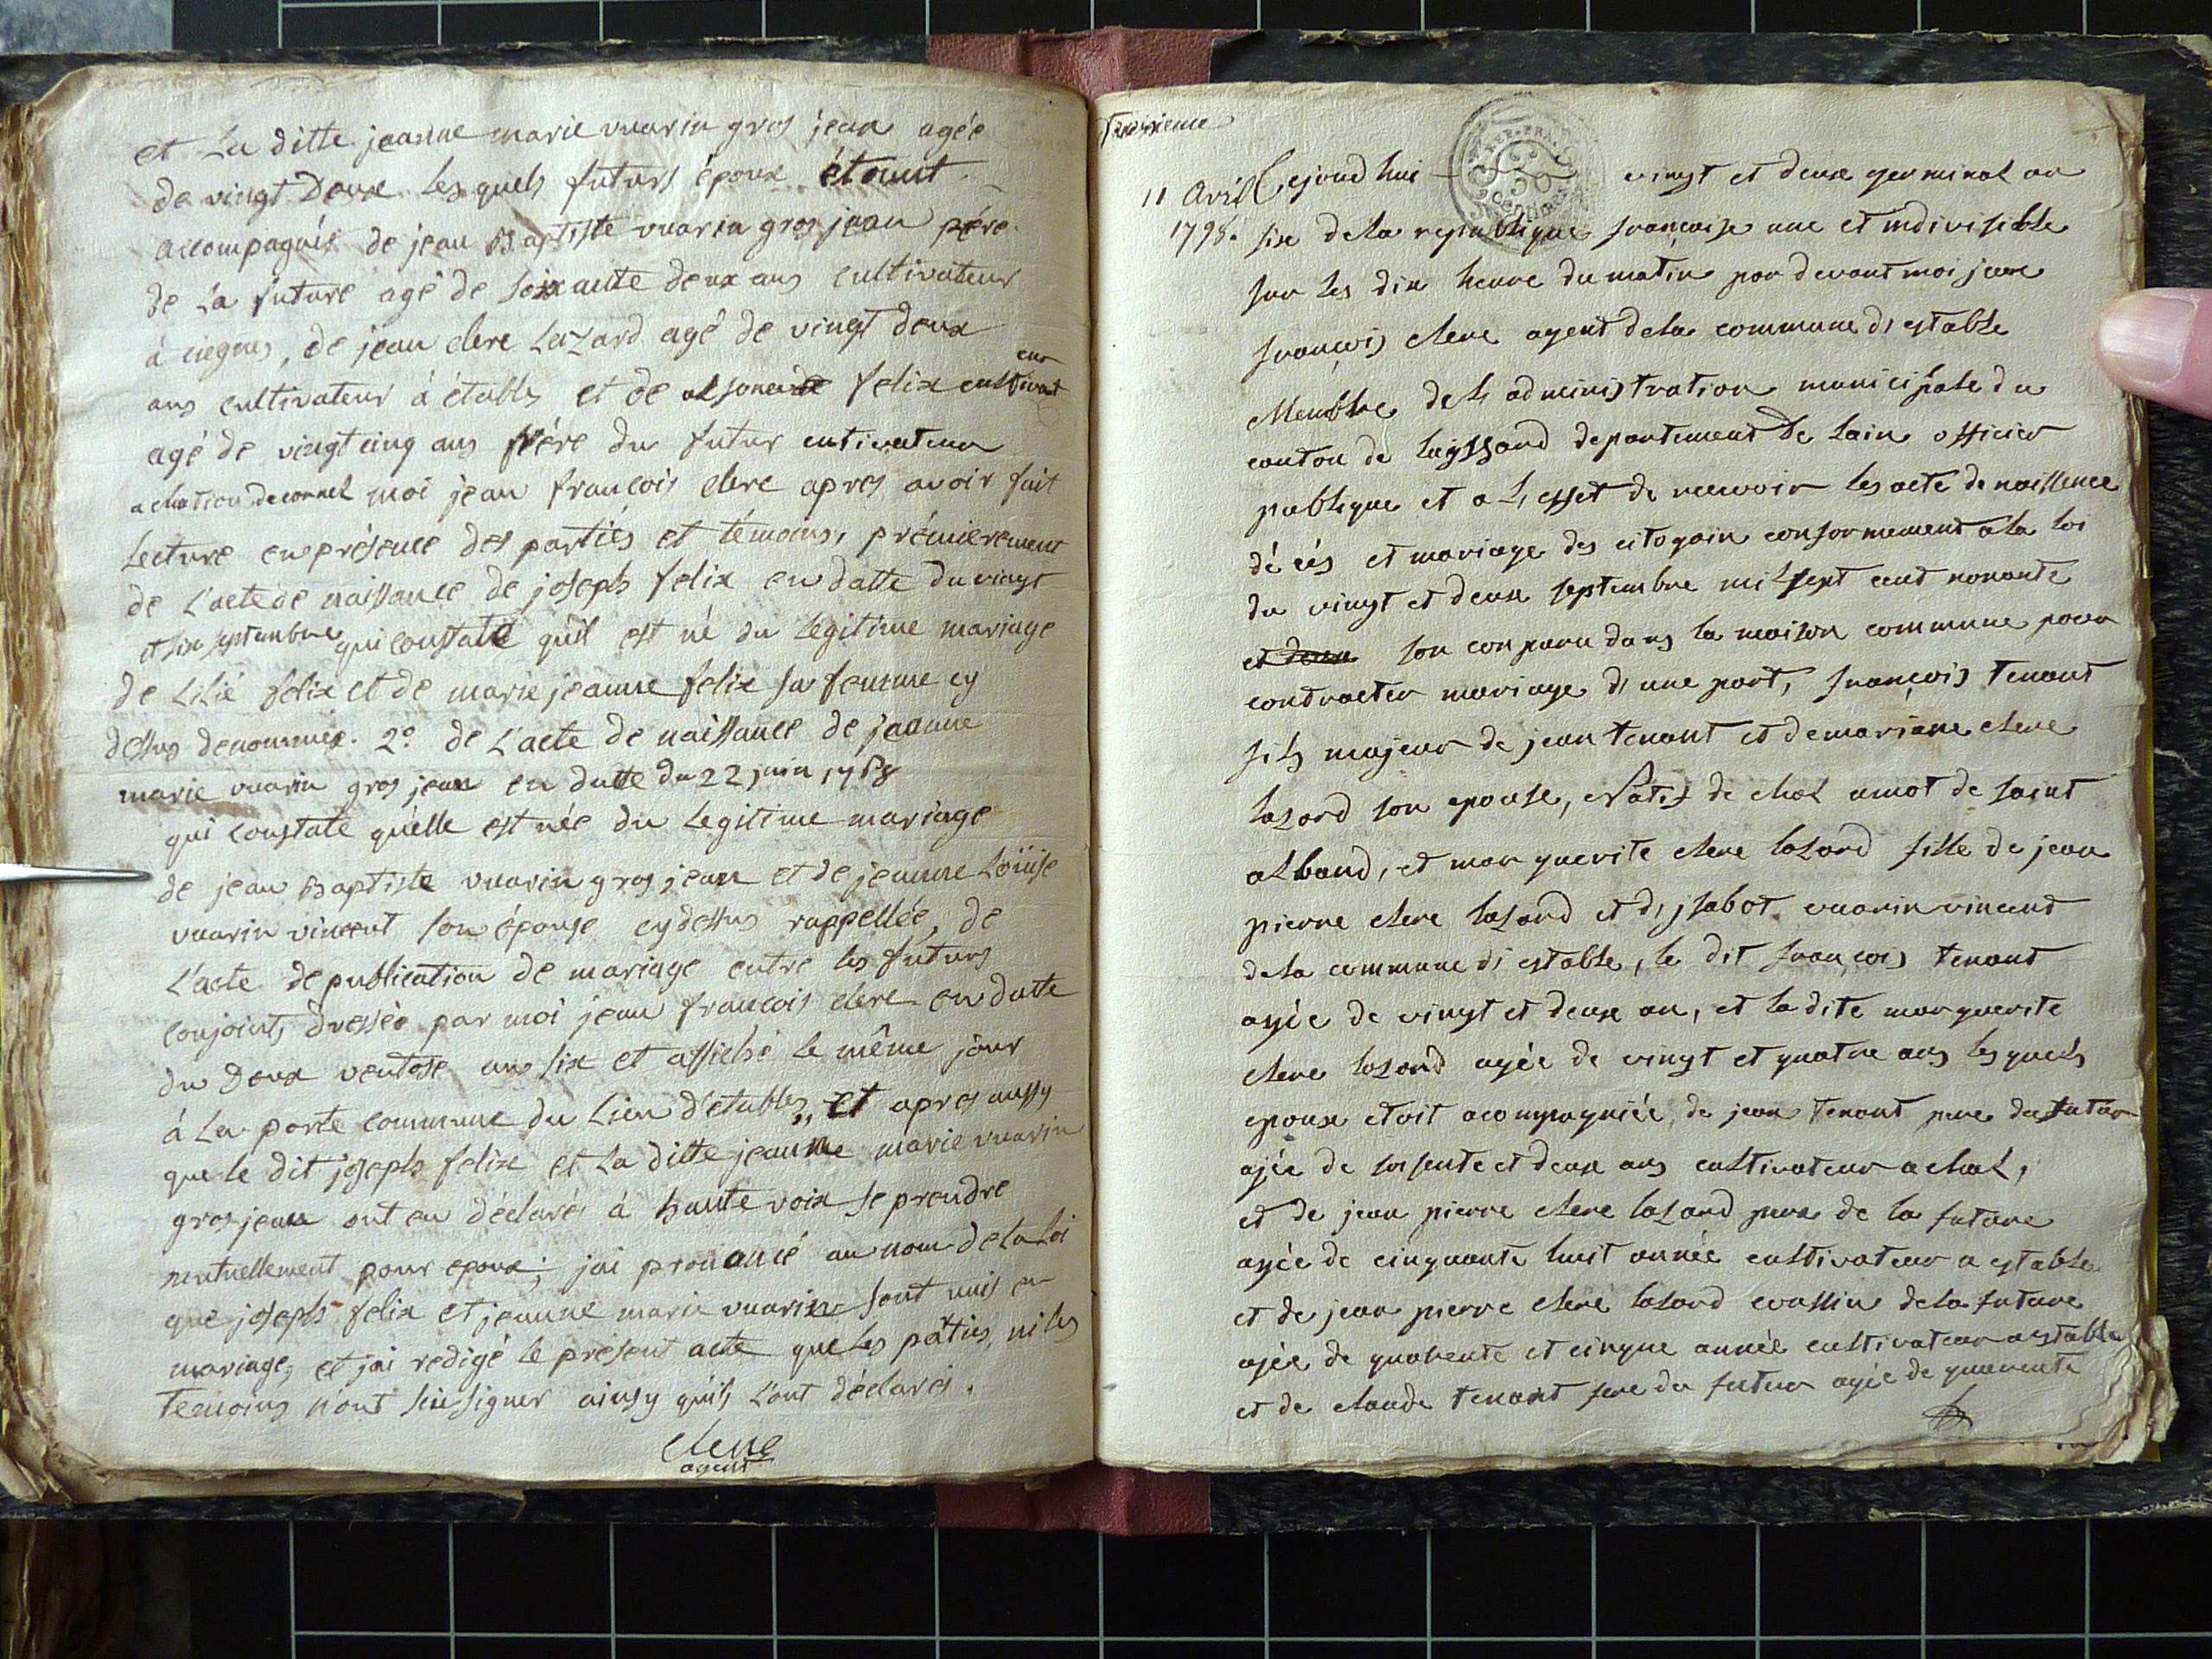 et La ditte jeanne marie vuarin gros jean agée
de vingt Deux les quels futurs époux étoint
accompagnés de jean Baptiste vuarin gros jean pére
de La future agé de soixante deux ans cultivateur
à ciegnes, de jean clerc Lazard agé de vingt deux
ans cultivateur à établs et de felix cultivat
eur
agé de vingt cinq ans frére du futur cutivateur
a moi jean francois clerc apres avoir fait
Lecture en présence des partiés et témoins, prémierement
de L'acte de naissance de joseph felix en datte du vingt
et six septembre qui constate quil est né du légitime mariage
de felix et de marie jeanne felix sa femme cy
dessus denommés. 2º de L'acte de naissance de jeanne
marie vuarin gros jean en datte du 22 juin
qui constate quélle est née du Legitime mariage
de jean Baptiste vuarin gros jean et de jeanne Loüise
vuarin vincent son épouse cydessus rappellée, de
L'acte de publication de mariage entre les futurs
conjoints dressée par moi jean francois clerc en datte
du Deux ventose an six et affiché le même jour
à La porte commune du Lieu d'etables,, et apres aussy
que le dit joseph felix et La ditte jeanne marie vuarin
gros jean ont eu déclarés à haute voix se prendre
mutuellement pour epoux; jai pronancé au nom de La Loi
que joseph felix et jeanne marie vuarin sont unis en
mariage, et jai redigé le présent acte que Les parties, ni les
Temoins n'ont sçu signer ainsy quils L'ont déclarés.
clerc
agent
Troisieme
11 Avril
1798.
Cejourdhui vingt et deux germinal an
REP. FRA.
50
centimes
six dela republique françoise une et indivisible
sur les dix heure du matin par devant moi jean
françois clerc agent dela commune d, estable
Membre del, administration municipale du
canton de leyssard departement De lain officier
publique et a l, effet de recevoir les acte de naissence
décés et mariage des citogain conformement a la loi
du vingt et deux septembre mil sept cent nonante
et deux son conparu dans la maison commune pour
contracter mariage d, une part, françois tenant
fils majeur de jean tenant et demariane clerc
lazard son epouse, Natif de chal umot de saint
alband, et marguerite clerc lazard fille de jean
pierre clerc lazard et d, jsabot vuarin vincent
dela commune d, estable, le dit françois tenant
agée de vingt et deux an, et la dite marguerite
clerc lazard agée de vingt et quatre ans les quels
epoux etoit acompagniée de jean tenant pere du futur
agée de soisente et deux ans cultivateur a chal,
et de jean pierre clerc lazard pere de la future
agée de cinquante huit année cultivateur a estable
et de jean pierre clerc lazard coussin dela future
agée de quarente et cinque année cultivateur a estable
et de claude tenant frere du futur agée de quarente